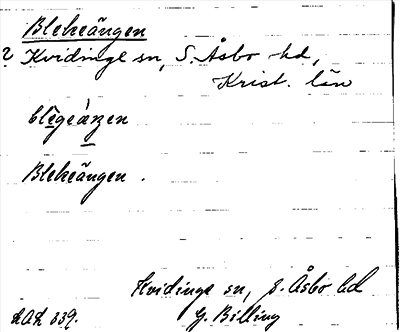 Blekeängen
? Kvidinge sn, S. Åsbo hd,
Krist. län
blegeäŋen
Blekeängen.
Kvidinge sn, S. Åsbo hd
LAL 339. G. Billing